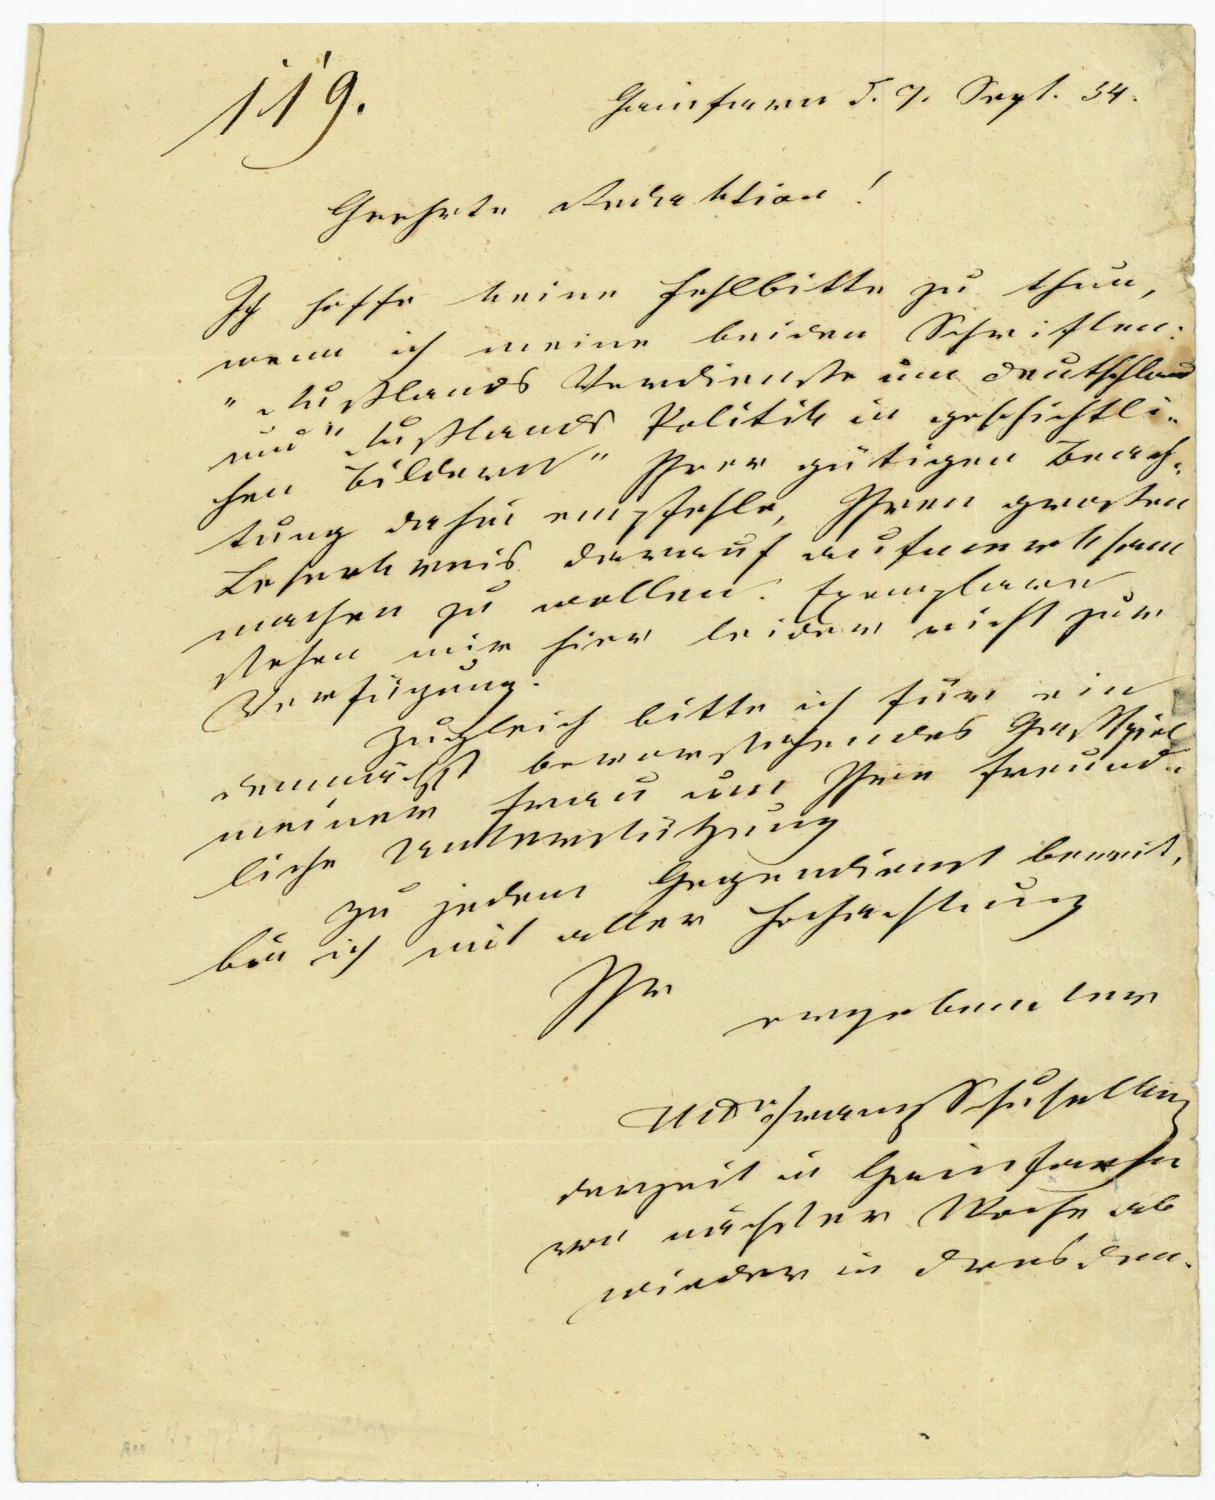 119.
Gainfarn d. 7. Sept. 54.
Geehrte Redaktion!
Ich hoffe keine Fehlbitte zu thun,
wenn ich meine beiden Schriften:
"Rußlands Verdienste um Deutschland
und "Rußlands Politik in geschichtli-
chen Bildern" Ihrer gütigen Beach-
tung dahin empfehle, Ihren großen
Leserkreis darauf aufmerksam
machen zu wollen. Exemplare
stehen mir hier leider nicht zur
Verfügung.
Zugleich bitte ich für ein
demnächst bevorstehendes Gastspiel
meiner Frau um Ihre freund-
liche Unterstützung
Zu jedem Gegendienst bereit,
bin ich mit aller Hochachtung
Ihr
ergebenster
Dr Franz Schuselka
derzeit in Gainfarn
von nächster Woche ab
wieder in Dresden.